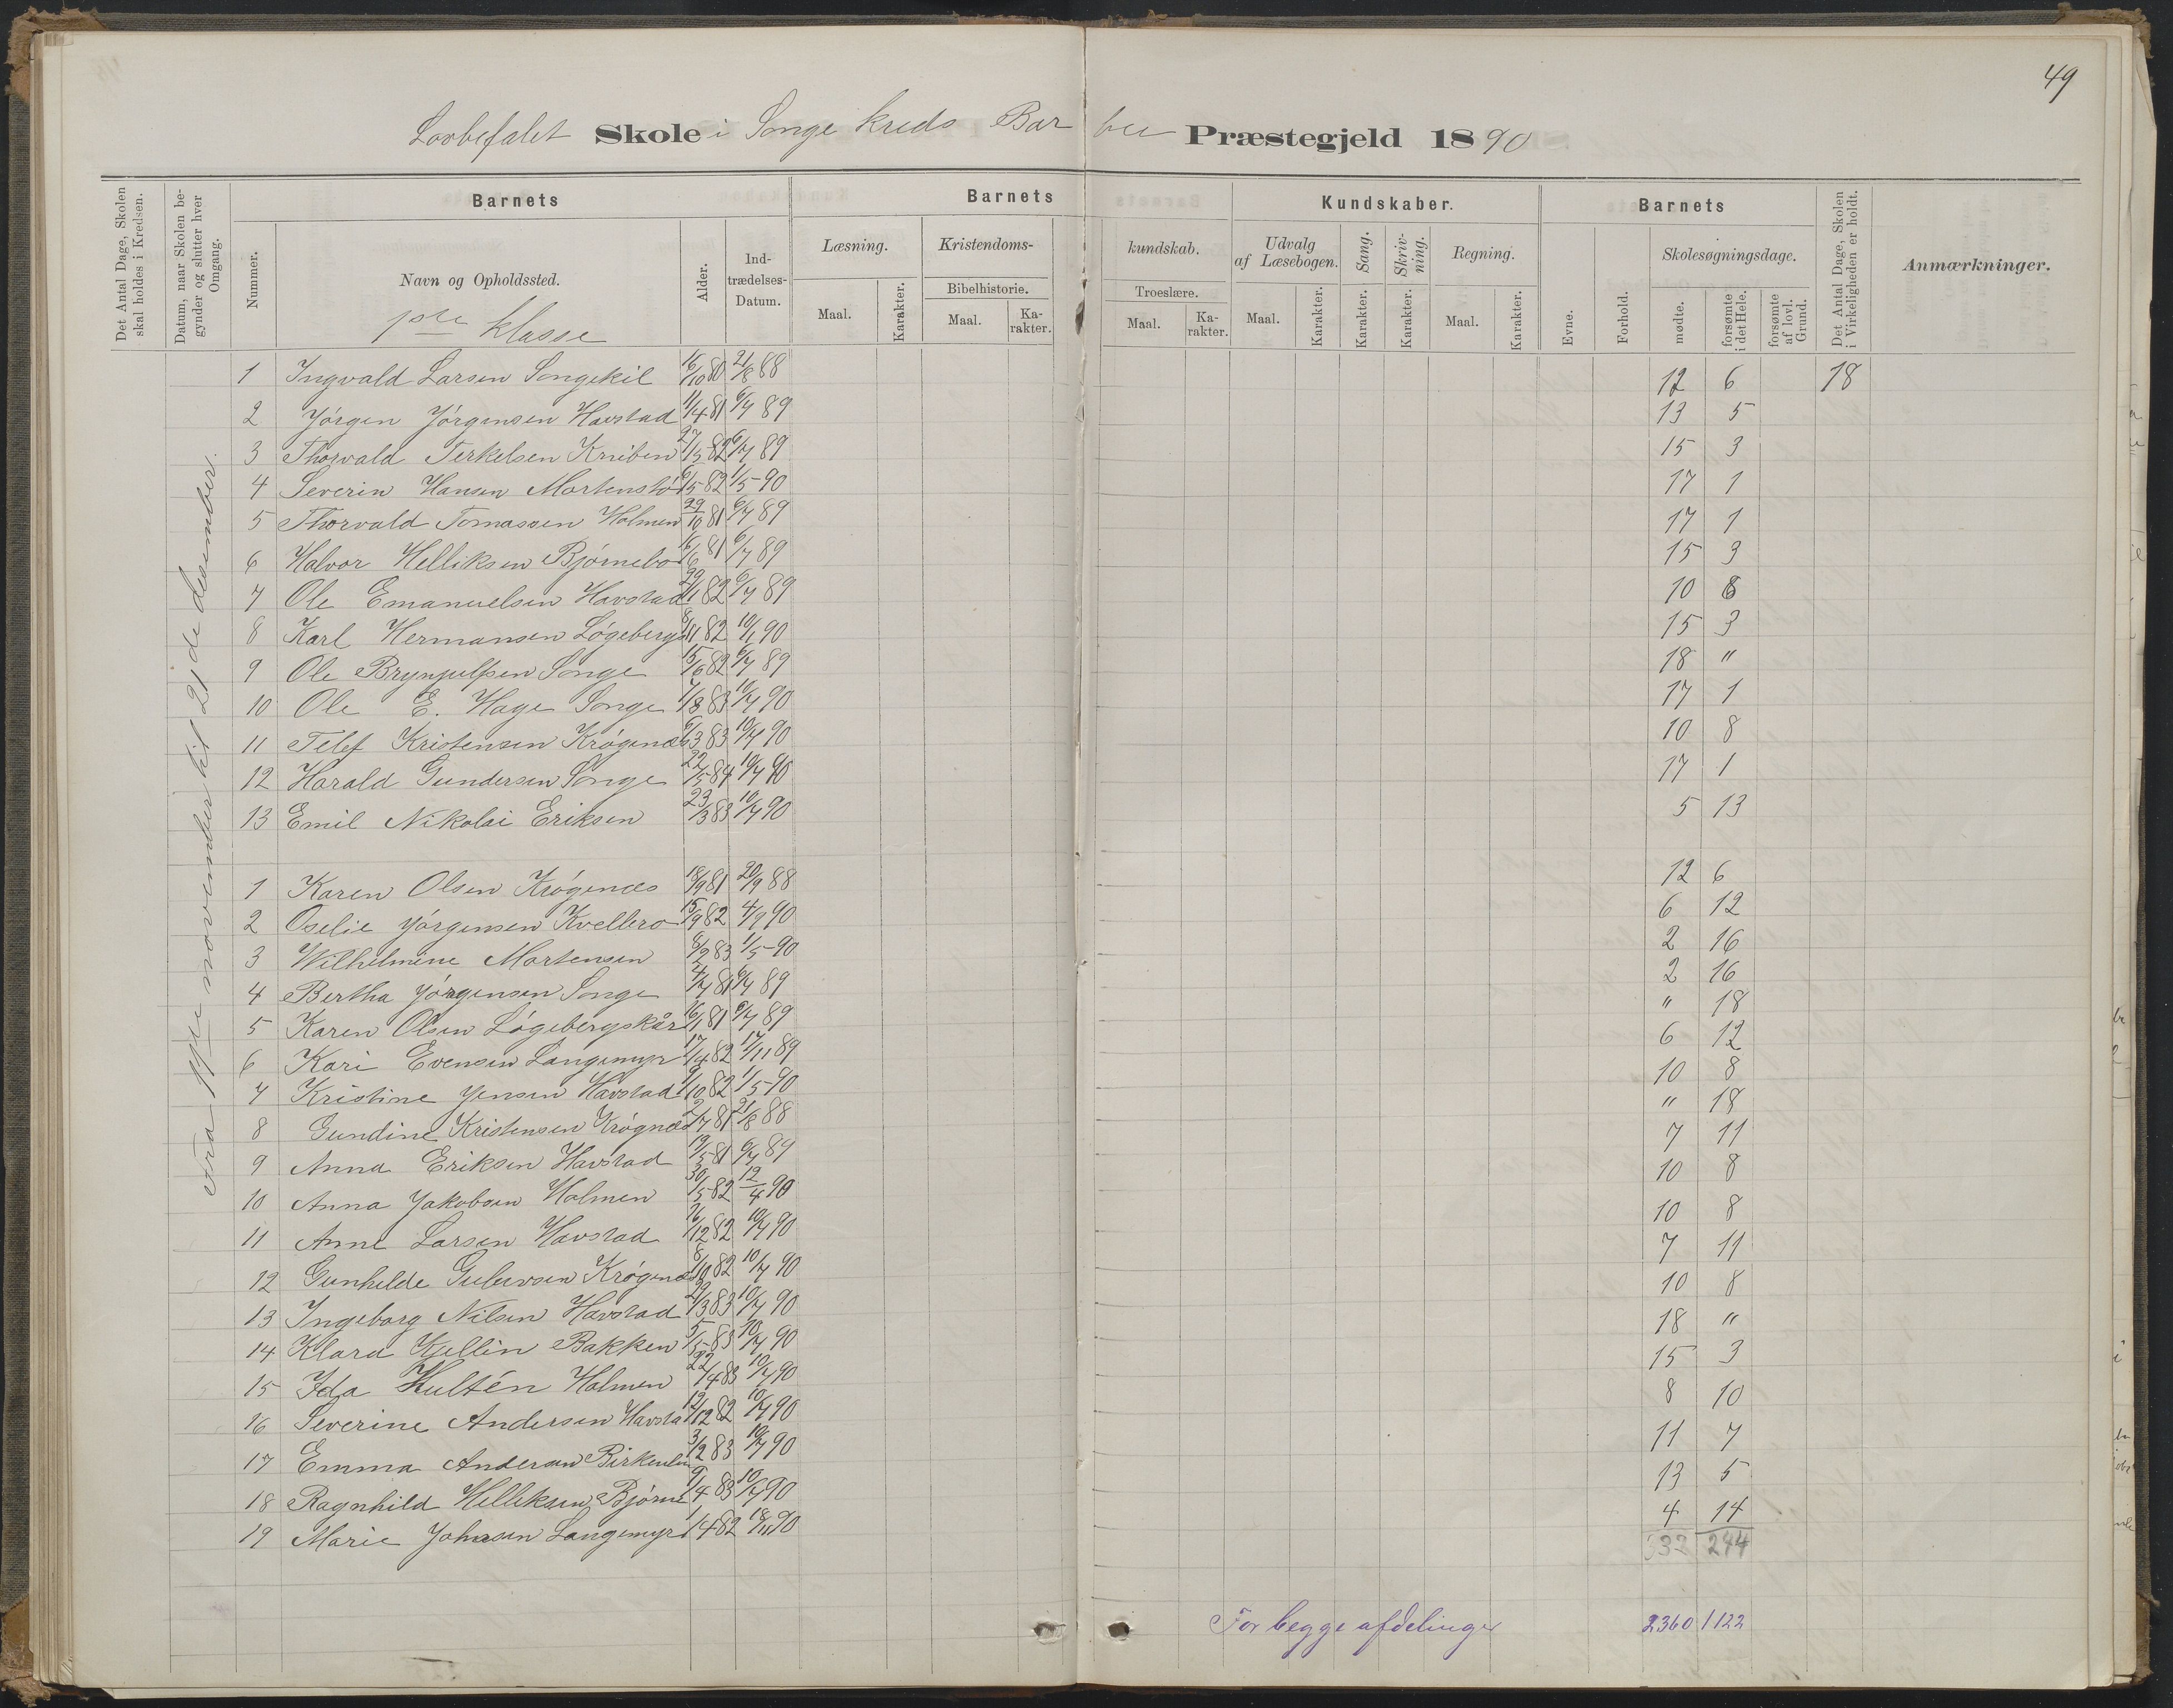 49
Lovbefalet Skole i Songe kreds Barbu Præstegjeld 1890
Det Antal Dage, Skolen skal holdes i Kredsen.
Datum, naar Skolen begynder og slutter hver Omgang.
Barnets
Nummer.
Navn og Opholdssted.
1ste klasse
Alder.
Indtrædelses-Datum.
Barnets Kundskaber.
Læsning.
Maal. Karakter.
Kristendomskundskab.
Bibelhistorie.
Maal. Karakter.
Troeslære.
Maal. Karakter.
Udvalg af Læsebogen.
Maal. Karakter.
Sang. Karakter.
Skrivning. Karakter.
Regning.
Maal. Karakter.
Barnets
Evne.
Forhold.
Skolesøgningsdage.
mødte.
forsømte i det Hele.
forsømte af lovl. Grund.
Det Antal Dage, Skolen i Virkeligheden er holdt.
Anmærkninger.
1 Ingvald Larsen Songekil 16/10 80 21/8 88 12 6 18
2 Jörgen Jörgensen Havstad 11/4 81 6/7 89 13 5
3 Thorvald Terkelsen Kniben 27/5 82 6/7 89 15 3
4 Severin Hansen 82 1/5-90 17 1
5 Thorvald Tomassen Holmen 29/10 81 6/7 89 17 1
6 Halvor Helliksen Bjørnebo 16/6 81 6/7 89 15 3
7 Ole Emanuelsen Havstad 82 6/7 89 10 8
8 Karl Hermansen Lögeberg 82 90 15 3
9 Ole Brynjulfsen Songe 15/6 82 6/7 89 18 "
10 Ole E. Hage Songe 7/8 83 10/7 90 17 1
11 Telef Kristensen Krögenæs 6/3 83 10/7 90 10 8
12 Harald Gundersen Songe 22/5 84 10/7 90 17 1
13 Emil Nikolai Eriksen 23/3 83 10/7 90 5 13
1 Karen Olsen Krögenæs 18/9 81 20/9 88 12 6
2 Oselie Jörgensen Kvellero 15/9 82 4/9 90 6 12
3 Wilhelmine Mortensen 8/2 83 1/5-90 2 16
4 Bertha Jörgensen Songe 4/7 81 6/7 89 2 16
5 Karen Olsen Lögebergskår 16/1 81 6/7 89 " 18
6 Kari Evensen Langemyr 17/4 82 17/11 89 6 12
7 Kristine Jensen Havstad 10 82 1/5-90 10 8
8 Gundine Kristensen Krögnæs 2/7 81 21/8 88 " 18
9 Anna Eriksen Havstad 19/5 81 6/7 89 7 11
10 Anna Jakobsen Holmen 30/5 82 12/4 90 10 8
11 Anne Larsen Havstad 16/12 82 10/7 90 10 8
12 Gunhilde Krögenæs 8/10 82 10/7 90 7 11
13 Ingeborg Nilsen Havstad 29/3 83 10/7 90 10 8
14 Klara Kjellin Bakken 5/5-83 10/7 90 18 "
15 Ida Hultén Holmen 22/4 83 10/7 90 15 3
16 Severine Andersen Havsta 12/12 82 10/7 90 8 10
17 Emma Andersen 3/2 83 10/7 90 11 7
18 Ragnhild Helliksen Bjørne 9/4 83 10/7 90 13 5
19 Marie Johnsen Langemyr 1/4 82 18/11 90 4 14
332 244
For begge afdelinger 2360 1122
Fra november til 21de desember.